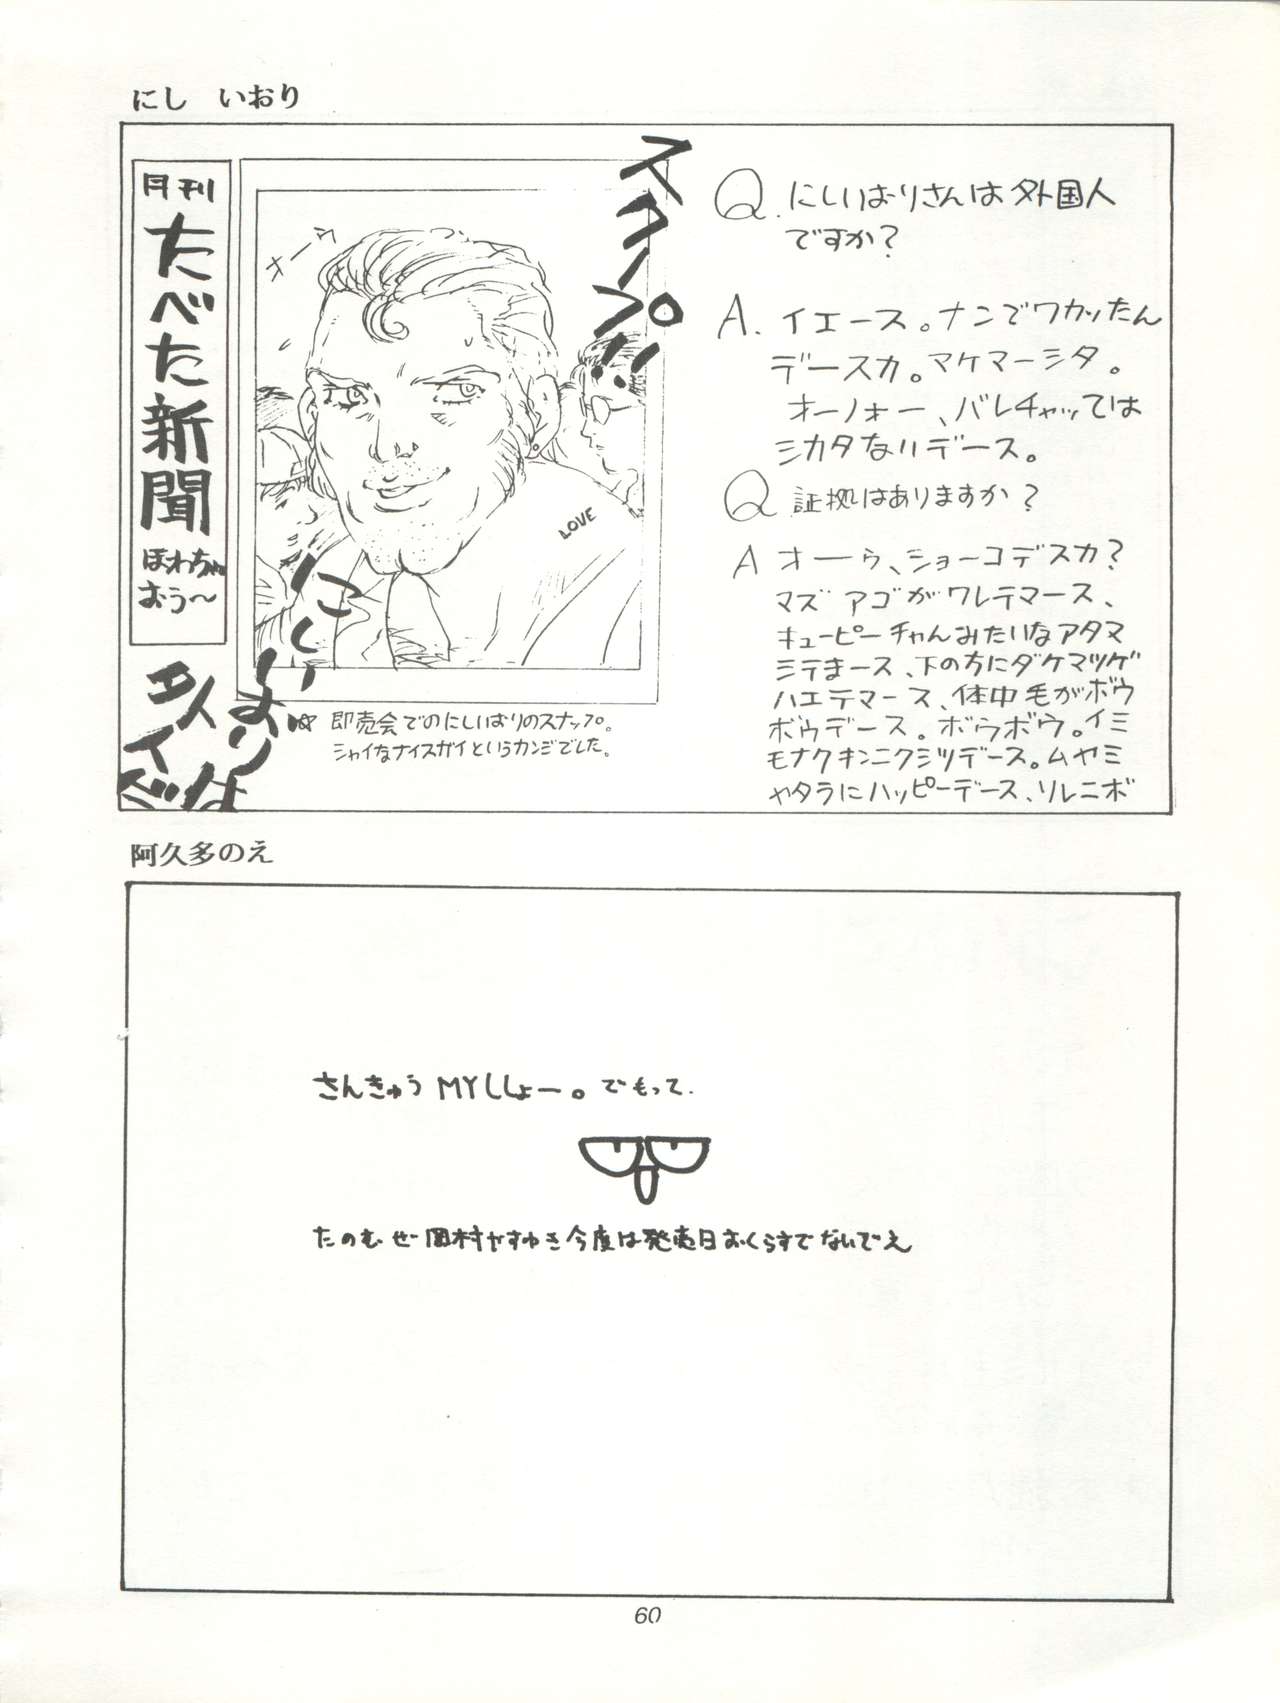 にし いおり
月刊
たべた新聞
ほわちゃ
おう〜
スクープ!!
オーウ
LOVE
にしいおりは
エイズ
☆ 即売会でのにしいおりのスナップ。
シャイなナイスガイというカンジでした。
Q. にしいおりさんは外国人
ですか?
A. イエース。ナンでワカッたん
デースカ。マケマーシタ。
オーノォー、バレチャッては
シカタないデース。
Q 証拠はありますか?
A オーゥ、ショーコデスカ?
マズ アゴがワレテマース、
キューピーチャんみたいなアタマ
ミテまース、下の方にダケマツゲ
ハエテマース、体中毛がボウ
ボウデース。ボウボウ。イミ
モナクキンニクシツデース。ムヤミ
ャタラにハッピーデース、ソレニボ
阿久多のえ
さんきゅう MYししょー。でもって.
たのむぜ岡村やすゆき今度は発売日おくらすでないでえ
60